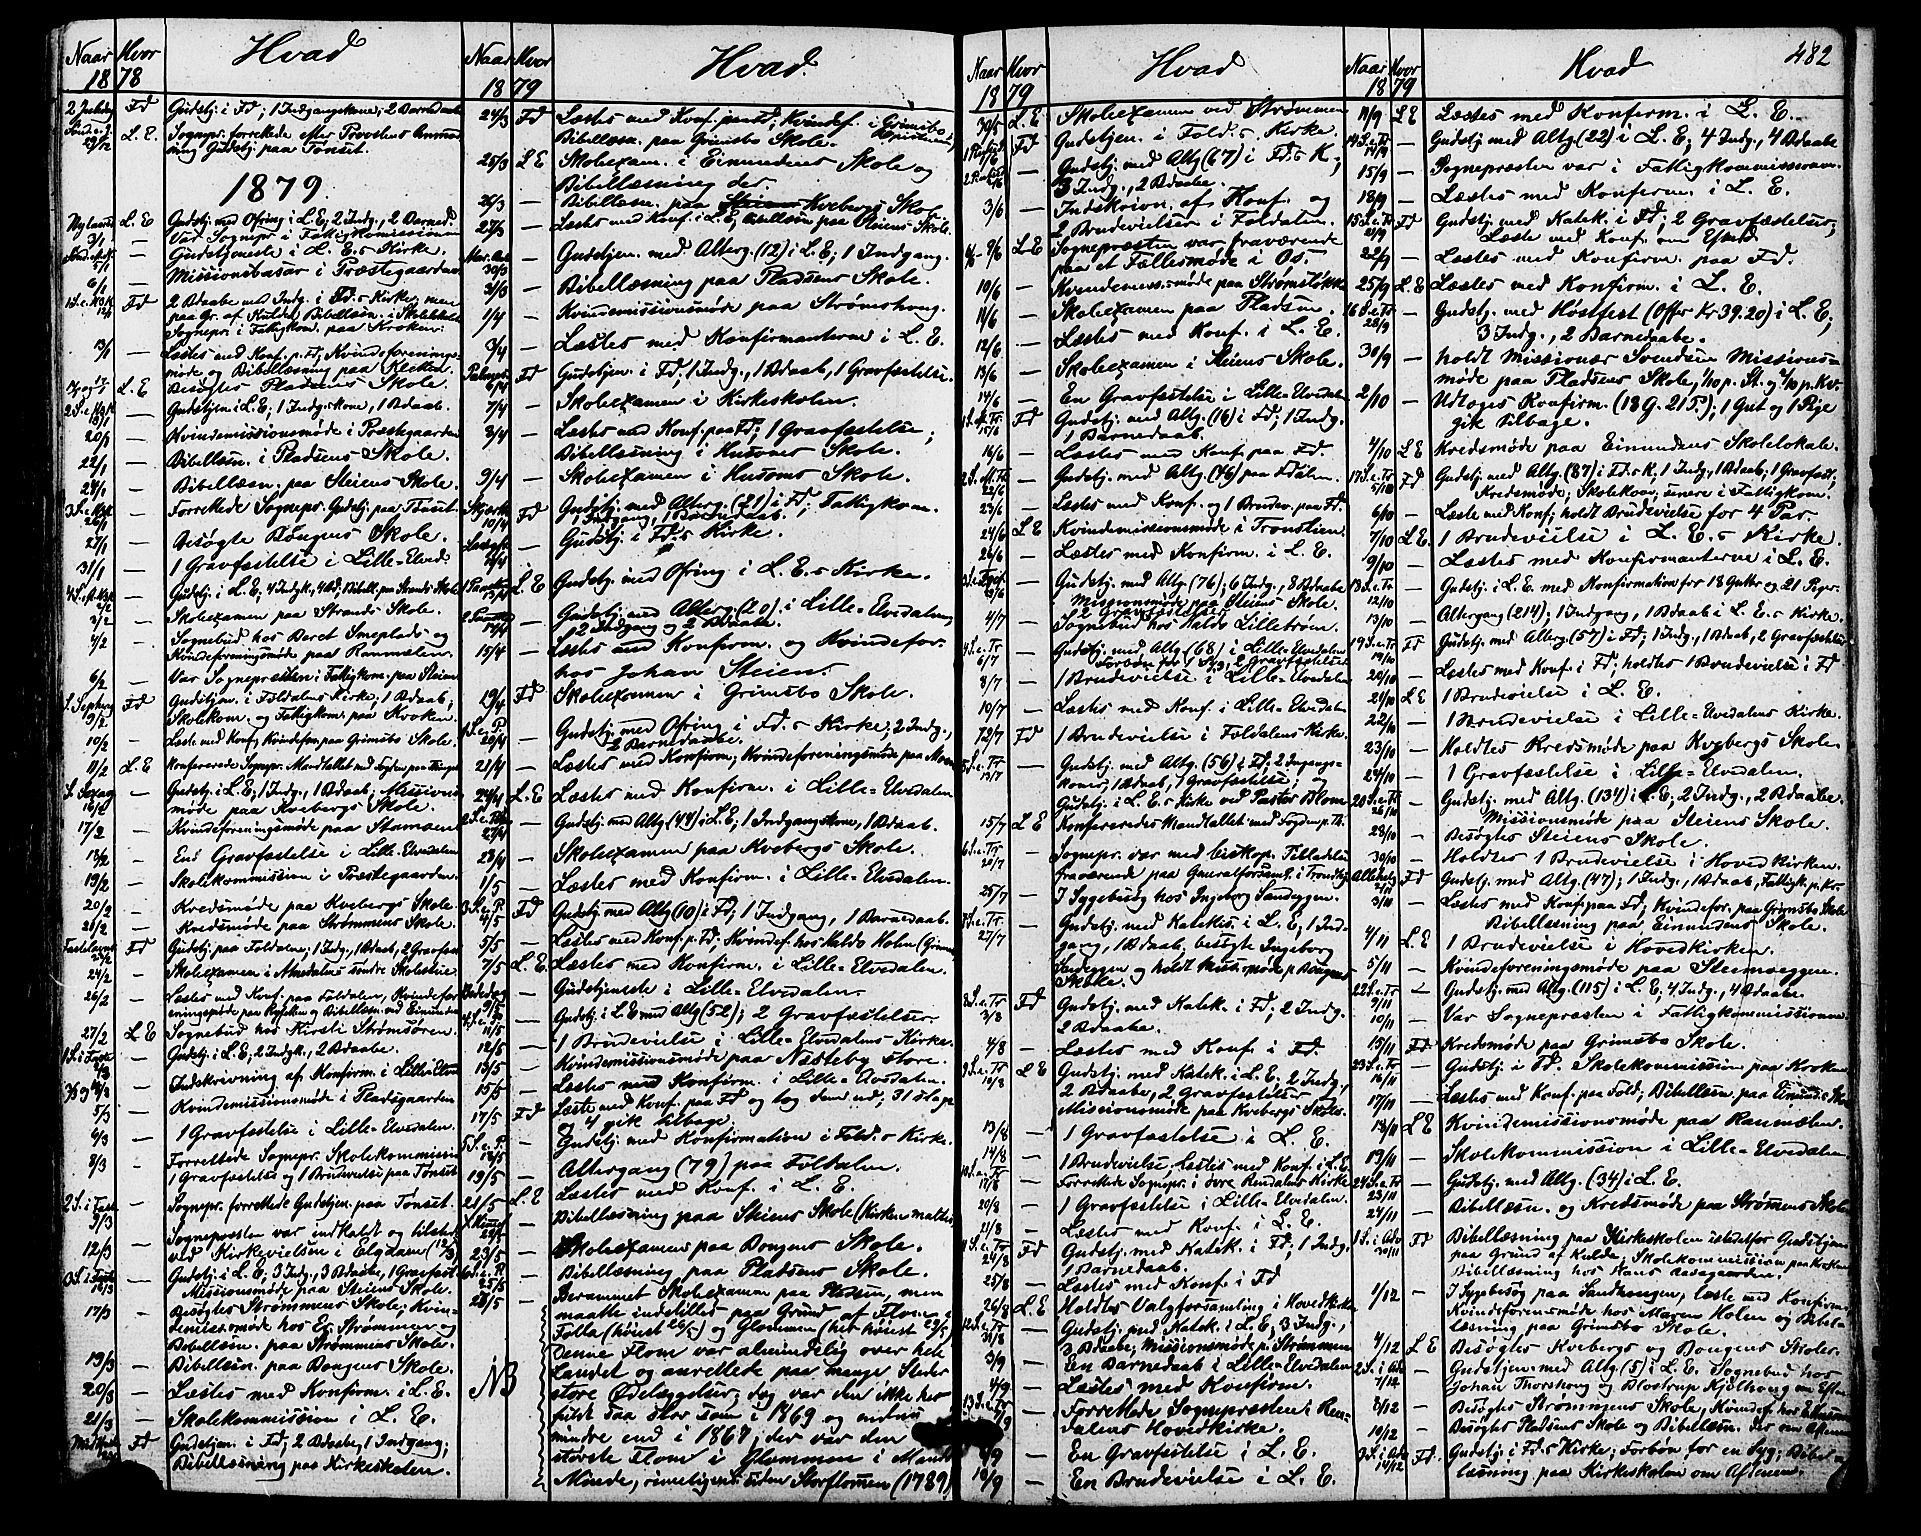 Naar Hvor Hvad
18 78
2 Juledag Fd Gudstj. i Fd; 1 Indgangskone; 2 Barnedaabe
29/12 L. E. Sognepr. forrettede efter Provstens Anmod-
ning Gudstj. paa Tønset.
1879.
Nytaarsd. L. E Gudstj. med Ofring i L. E; 2 Indg., 2 Barned.
3/1 — Var Sognepr. i Fattigkomissionen
5/1 — Gudstjeneste i L. E.s Kirke.
6/1 — Missionsbasar i Præstegaarden
12/1 Fd 2 Bdaabe med Indg. i Fd.s Kirke; men
paa Gr. af Kulde, Bibellæsn. i Skolelokalet
Sognepr. i Fattigkom. paa Kroken.
13/1 — Læstes med Konf. p. Fd; Kvindeforenings-
møde og Bibellæsning paa
L. E Besøgte Pladsens Skole.
— Gudstjen. i L. E; 1 Indg.skone, 1 Bdaab.
20/1 — Kvindemissionsmøde i Præstegaarden
22/1 — Bibellæsn. i Pladsens Skole.
24/1 — Bibellæsn. paa Steiens Skole.
26/1 — Forrettede Sognepr. Gudstj. paa Tønset.
27/1 — Besøgte Bongens Skole.
31/1 — 1 Gravfæstelse i Lille-Elved.
2/2 — Gudstj. i L. E; 4 Indgk., 4 Bd; Bibell. paa Strands Skole
3/2 — Skolexamen paa Strands Skole.
4/2 — Sognebud hos Beret Smeplads og
Kvindeforeningsmøde paa Rammelen.
6/2 — Var Sognepræsten i Fattigkom. paa Steien
9/2 Fd Gudstjen. i Foldalens Kirke; 1 Bdaab;
Skolekom. og Fattigkom. paa Kroken.
10/2 — Læste med Konf; Kvindefor. paa Grimsbo Skole.
11/2 L. E Konfererede Sognepr. Mandtallet med Fogden paa Tønset
16/2 — Gudstj. i L. E; 1 Indg., 1 Bdaab; Missions-
møde paa Kvebergs Skole.
17/2 — Kvindeforeningsmøde paa Stamsen
18/2 — En Gravfæstelse i Lille-Elvedalen
19/2 — Skolekommission i Præstegaarden.
20/2 — Kredsmøde paa Kvebergs Skole
21/2 — Kredsmøde paa Strømmens Skole.
Fastelavns 23/2 Fd Gudstj. paa Foldalen; 1 Indg., 1 Bdaab, 2 Gravfæst
24/2 — Skolexamen i Atnedalens søndre Skolestue
26/2 — Læstes med Konf. paa Foldalen, Kvindefor-
eningsmøde paa og Bibellæsn. ved Einunda
27/2 L E Sognebud hos Kirsti Strømsøren.
— Gudstj. i L. E; 2 Indgk., 2 Bdaabe.
— Indskrivning af Konfirm. i Lille-Elved
5/3 — Kvindemissionsmøde i Præstegaarden
— 1 Gravfæstelse i Lille-Elvedalen.
8/3 — Forrettede Sognepr. Skolekommission
1 Gravfæstelse og 1 Brudevielse paa Tønset
9/3 — Sognepr. forrettede Gudstjen. paa Tønset.
12/3 — Sognepræsten var indkaldt og tilstede
ved Kirkevielsen i Elgdam (12/3)
— Gudstj. i L. E; 3 Indg., 3 Bdaabe, 1 Gravfæst
Missionsmøde paa Steiens Skole.
17/3 — Besøgtes Strømmens Skole; Kvin-
demissmøde hos Er. Strømmen og
Bibellæsn. paa Strømmens Skole.
19/3 — Bibellæsn. paa Bongens Skole.
20/3 — Læstes med Konfirm. i L. E.
21/3 — Skolekommission i L. E.
Fd Gudstjen. i Fd; 2 Bdaabe, 1 Indgang;
Bibellæsning paa Kirkeskolen.
Naar Hvor Hvad.
18 79
24/3 Fd Læstes med Konf. paa Fd; Kvindef. i Grimsbo
Bibellæsn. paa Grimsbo Skole.
25/3 L E Skolexam. i Einundens Skole og
Bibellæsning der.
26/3 — Bibellæsn. paa Kvebergs Skole
27/3 — Læstes med Konf. i L. E; Bibellæsn paa Steiens Skole.
30/3 — Gudstjen. med Alterg. (12) i L. E; 1 Indgang.
31/3 — Bibellæsning paa Pladsens Skole.
1/4 — Kvindemissionsmøde paa Strømshaug.
3/4 — Læstes med Konfirmanterne i L. E.
Palmes. 6/4 Fd Gudstjen. i Fd; 1 Indg., 1 Bdaab, 1 Gravfæstelse.
7/4 — Skolexamen i Kirkeskolen.
8/4 — Læstes med Konf. paa Fd; 1 Gravfæstelse;
Bibellæsning i Husoms Skole.
9/4 — Skolexamen i Husoms Skole.
Skjærth 10/4 Fd Gudstj. med Alterg. (21) i Fd; Fattigkom.
1 Indgang, 1 Barnedaab.
— Gudstj. i Fd.s Kirke.
13/4 L E Gudstj. med Ofring i L. E.s Kirke.
14/4 — Gudstj. med Alterg. (20) i Lille-Elvedalen,
2 Indgang og 2 Bdaabe.
15/4 — Læstes med Konfirm. og Kvindefor.
hos Johan Steien.
19/4 Fd Skolexamen i Grimsbo Skole.
20/4 — Gudstj. med Ofring i Fd.s Kirke; 2 Indg.,
2 Barnedaabe.
21/4 — Læstes med Konfirm; Kvindeforeningsmøde paa Moen
24/4 L. E Læstes med Konfirm. i Lille-Elvedalen
27/4 — Gudstj. med Altg (44) i L. E; 1 Indgangskone, 1 Bdaab.
28/4 — Skolexamen paa Kvebergs Skole.
1/5 — Læstes med Konfirm. i Lille-Elvedalen.
4/5 Fd Gudstj med Altg (10) i Fd; 1 Indgang, 1 Barnedaab.
5/5 — Læstes med Konf. p. Fd; Kvindef. hos Haldo Holm (Grimsbo
7/5 L. E. Læstes med Konfirm. i Lille-Elvedalen.
Bededag 9/5 — Gudstjeneste i Lille-Elvedalen.
11/5 — Gudstj. i L. E med Altg (52); 2 Gravfæstelser.
12/5 — 1 Brudevielse i Lille-Elvedalens Kirke.
13/5 — Kvindemissionsmøde paa Næsteby store
15/5 — Læstes med Konfirm. i Lille-Elvedalen.
17/5 Fd Læste med Konf. paa Fd og tog dem ud; 31 stod
4 gik tilbage.
18/5 — Gudstj. med Konfirmation i Fold.s Kirke.
19/5 — Altergang (79) paa Foldalen.
21/5 L. E Læstes med Konf. i L. E.
— Bibellæsning paa Steiens Skole (Kirken maltes)
23/5 — Skolexamen paa Bongens Skole.
25/5 — Bibellæsning paa Pladsens Skole.
28/5 — Berammet Skolexamen paa Pladsen, men
maatte indstilles paa Grund af Flom i
Folla (høiest 26/5) og Glommen (her høiest 29/5)
Denne Flom var almindelig over hele
Landet og anrettede paa mange Steder
NB store Ødelæggelser; dog var den ikke her
fuldt saa stor som i 1869 og endnu
mindre end i 1867, der var den
største Flom i Glommen i Mands
Minde, rimeligvis siden Storflommen (1789)
Naar Hvor Hvad
18 79
30/5 L E Skolexamen ved Strømmen
1 Pintsed. 1/6 Fd Gudstjen. i Fold.s Kirke.
2 Pintsed. 2/6 — Gudstj. med Altg (67) i Fd.s K;
3 Indg., 2 Bdaabe.
3/6 — Indskrivn. af Konf. og
2 Brudevielser i Foldalen.
9/6 L E Sognepræsten var fraværende
paa et Fællesmøde i Os.
10/6 — Kvindemiss.møde paa Strømsløkken
11/6 — Skolexamen paa Pladsen.
12/6 — Læstes med Konf. i L. E.
13/6 — Skolexamen i Steiens Skole.
14/6 — En Gravfæstelse i Lille-Elvedalen
15/6 Fd Gudstj. med Altg. (16) i Fd; 1 Indg.
1 Barnedaab.
16/6 — Læstes med Konf. paa Fd.
22/6 — Gudstj. med Altg. (46) paa Fdalen.
23/6 — Læstes med Konf. og 1 Brudev. paa Fd.
24/6 L E Kvindemissionsmøde i Tronstien
26/6 — Læstes med Konfirm. i L. E.
29/6 — Gudstj. med Altg. (76); 6 Indg., 8 Bdaabe
Missionsmøde paa Steiens Skole.
4/7 — Sognebud hos Haldo Lillestrøm.
6/7 — Gudstj. med Altg. (68) i Lille-Elvedalen
8/7 — 1 Brudevielse i Lille-Elvedalen
10/7 — Læstes med Konf. i Lille-Elvedalen
12/7 Fd 1 Brudevielse i Foldalens Kirke.
13/7 — Gudstj. med Altg. (56) i Fd; 2 Ingangs-
koner, 1 Bdaab, 1 Gravfæstelse, og
Gudstj. i L. E.s Kirke ved Pastor Blom
15/7 L E Konfereredes Mandtallet med Fogden p. T.
20/7 — Sognepr. var med biskop. Tilladelse
fraværende paa Generalforsaml. i Trondhj.
25/7 — I Sygebesøg hos Ingeborg Sandeggen.
27/7 — Gudstj. med Katekis. i L. E, 1 Ind-
gang, 1 Bdaab, besøgte Ingeborg
Sandeggen og holdt Miss.møde p. Bongens
Skole.
3/8 Fd Gudstj. med Katek. i Fd; 2 Indg.
2 Bdaabe.
4/8 — Læstes med Konf. i Fd.
10/8 L E Gudstj. med Katek. i L. E, 2 Indg,
2 Bdaabe, 2 Gravfæstelser,
Missionsmøde paa Kvebergs Skole.
13/8 — 1 Gravfæstelse i L. E.
14/8 — 1 Brudevielse. Læstes med Konf. i L. E.
17/8 — Forrettede Sognepr. i øvre Rendalens Kirke
20/8 — 1 Gravfæstelse i Lille-Elvedalen.
21/8 — Læstes med Konf. i L. E.
24/8 Fd Gudstj. med Katek. i Fd; 1 Indg.
1 Barnedaab.
25/8 — Læstes med Konf. i Fd
26/8 L E Holdtes Valgforsamling i Hovedkirken
31/8 — Gudstj. med Katek. i L. E; 3 Indg.,
3 Bdaabe; Missionsmøde p. Strømmen
3/9 — En Barnedaab i Lille-Elvedalen
4/9 — Læstes med Konfirm.
7/9 — Forrettede Sognepræsten i Ren-
dalens Hovedkirke.
9/9 — En Gravfæstelse i L. E.
10/9 — En Brudevielse i L. E.
Naar Hvor Hvad 482
18 79
11/9 L E Læstes med Konfirm. i L. E.
14/9 — Gudstj. med Altg. (22) i L. E; 4 Indg., 4 Bdaabe
15/9 — Sognepræsten var i Fattigkommissionen.
18/9 — Læstes med Konfirm. i L. E.
21/9 Fd Gudstj. med Katek. i Fd; 2 Gravfæstelser;
Læste med Konf. om Efmd.
22/9 — Læstes med Konfirm. paa Fd.
25/9 L E Læstes med Konfirm. i L. E.
28/9 — Gudstj. med Høstfest (Offer Kr 39.20) i L. E;
3 Indg., 2 Barnedaabe.
30/9 — Holdt Missionær Svendsen Missions-
møde paa Pladsens Skole, 1/10 p. St. og 2/10 p. Kv.
2/10 — Udtoges Konfirm. (18 G. 21 P.); 1 Gut og 1 Pige
gik tilbage.
4/10 L E Kredsmøde paa Einundens Skolelokale.
5/10 Fd Gudstj. med Altg. (87) i Fd.s K; 1 Indg., 1 Bdaab, 1 Gravfæst;
Kredsmøde; Skolekom; senere i Fattigkom.
6/10 — Læste med Konf; holdt Brudevielse for 4 Par.
7/10 L E. 1 Brudevielse i L. E.s Kirke.
9/10 — Læstes med Konfirmanterne i L. E.
12/10 — Gudstj. i L. E. med Konfirmation for 18 Gutter og 21 Piger.
13/10 — Altergang (214); 1 Indgang, 1 Bdaab i L. E.s Kirke.
19/10 Fd Gudstj. med Alterg. (57) i Fd; 1 Indg., 1 Bdaab, 2 Gravfæstelser
20/10 — Læstes med Konf. i Fd; holdtes 1 Brudevielse i Fd
21/10 L E 1 Brudevielse i L. E.
22/10 — 1 Brudevielse i Lille-Elvedalens Kirke.
23/10 — Holdtes Kredsmøde paa Kvebergs Skole.
24/10 — 1 Gravfæstelse i Lille-Elvedalen.
26/10 — Gudstj. med Altg. (134) i L. E; 2 Indg., 2 Bdaabe.
Missionsmøde paa Steiens Skole.
28/10 — Besøgtes Steiens Skole.
30/10 — Holdtes 1 Brudevielse i Hovedkirken.
Allehelg. 2/11 Fd Gudstj. med Altg. (47); 1 Indg., 1 Bdaab, Fattigk. p. Kr.
3/11 — Læstes med Konf. paa Fd; Kvindefor. paa Grimsbo Skole
Bibellæsning paa Einundens Skole.
4/11 L E 1 Brudevielse i Hovedkirken.
5/11 — Kvindeforeningsmøde paa Steimoeggen.
9/11 — Gudstj. med Altg. (115) i L. E; 4 Indg., 4 Bdaabe.
10/11 — Var Sognepræsten i Fattigkommissionen.
15/11 Fd Kredsmøde paa Grimsbo Skole.
16/11 — Gudstj. i Fd. Skolekommission paa Kroken
17/11 — Læstes med Konf. paa Fold; Bibellæsn. paa Einunds Skole
18/11 L E Kvindemissionsmøde paa Ranmælen.
19/11 — Skolekommission i Lille-Elvedalen
23/11 — Gudstj. med Altg. (34) i L. E.
24/11 — Bibellæsn. og Kredsmøde paa Strømmens Skole
30/11 Fd Bibellæsning paa Kirkeskolen istedetfor Gudstjen.
paa Grund af Kulde, Skolekommission paa Kroken
Bibellæsning hos Hans
1/12 — I Sygebesøg paa Sandhougen, læste med Konfirm
Kvindeforensmøde hos Maren Holen og Bibel-
læsning paa Grimsbo Skole.
4/12 L E Besøgtes Kvebergs og Bongens Skoler.
7/12 — Gudstjen. med Altg (5) i L. E. Sognebud hos
Johan Thorshoug og Kjølhoug om Eftm
8/12 — Besøgtes Strømmens Skole, Kvindef. hos
10/12 — Besøgtes Pladsens Skole og Bibellæsn. der om Aftenen
14/12 Fd. Gudstj. i Fd.s Kirke; Forbøn for en Syg; Bibel-
læsning paa Kirkeskolen om Aftenen.